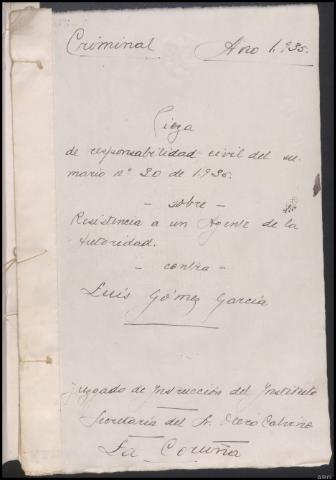 Criminal Año 1.935.
Pieza
de responsabilidad civil del su-
mario nº 20 de 1.935.
- sobre -
Resistencia a un Agente de la
Autoridad.
- contra -
Luis Gómez García
Juzgado de Instrucción del Instituto
Secretaría del Sr. Otero Calviño
La Coruña